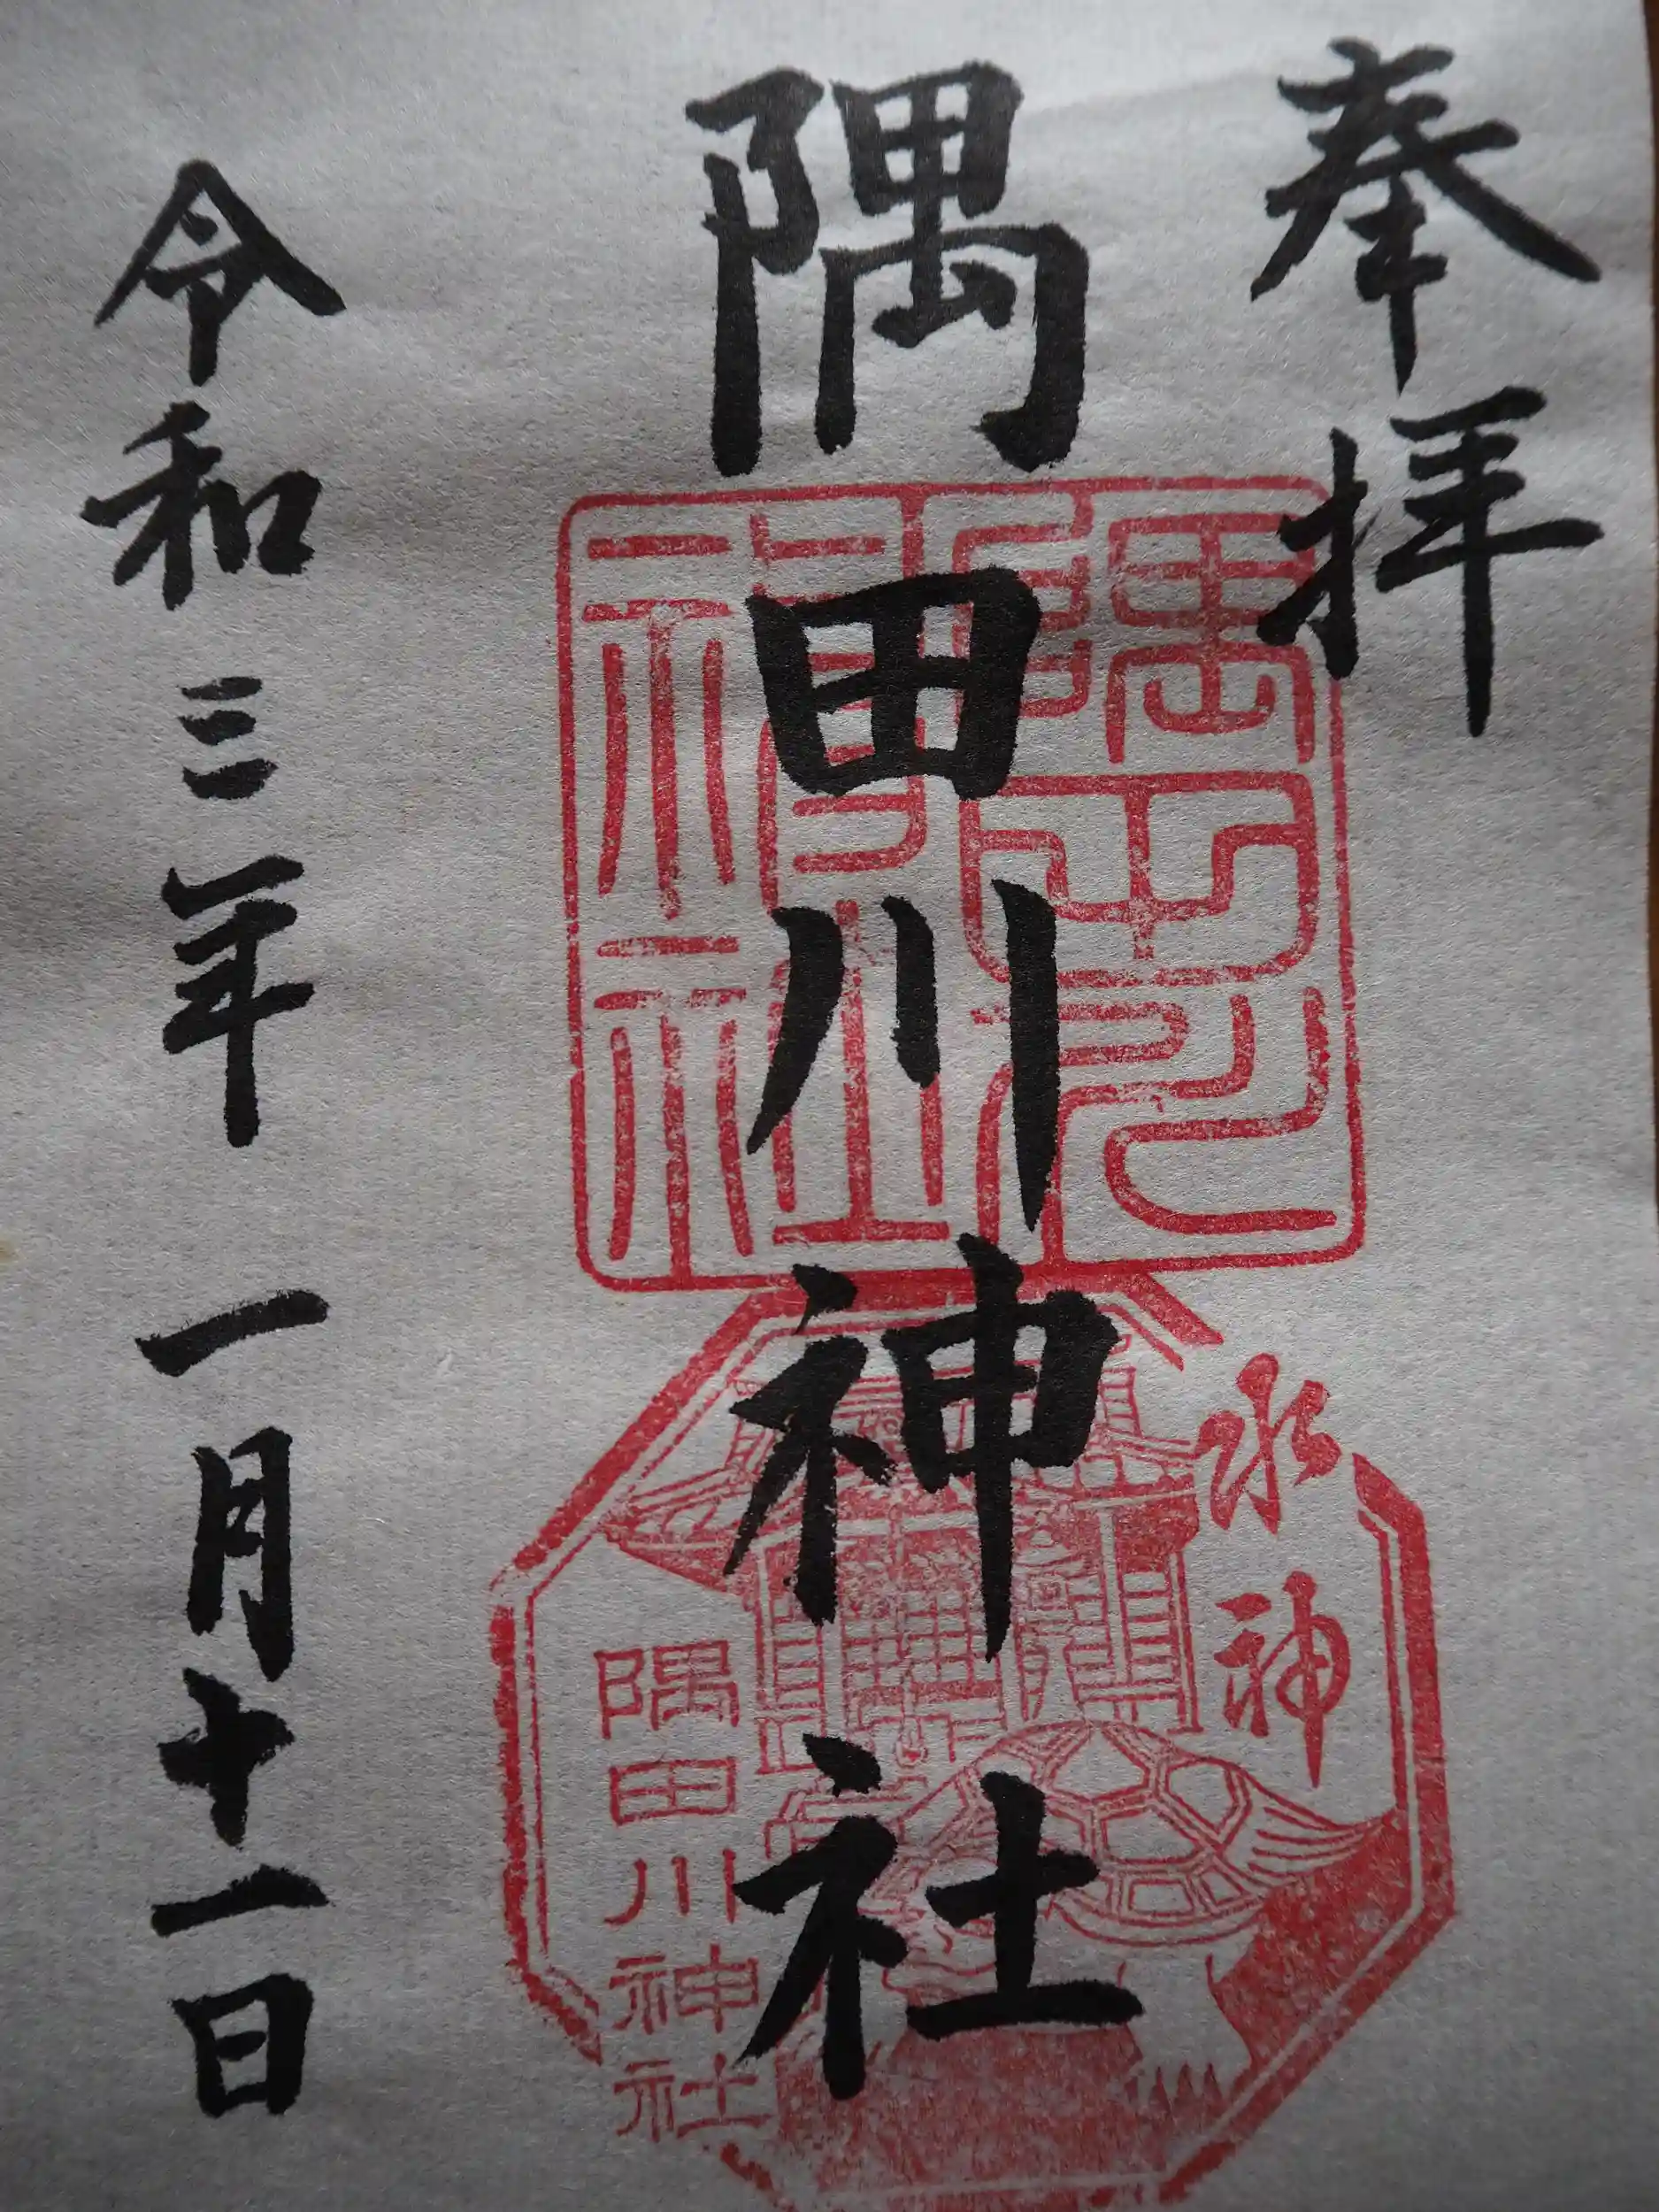 奉拝
隅田川神社
隅田川神社
水神
隅田川神社
令和三年 一月十一日